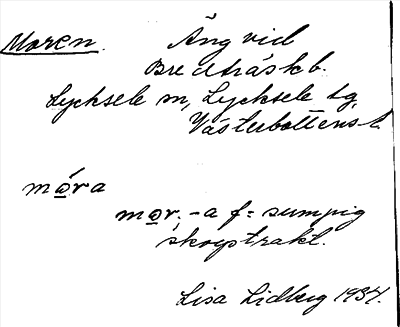 Moren. Äng vid
Bredträsk b.
Lycksele sn, Lycksele tg,
Västerbottens l.
móra
mor. -a f = sumpig
skogstrakt.
Lisa Lidberg 1934.